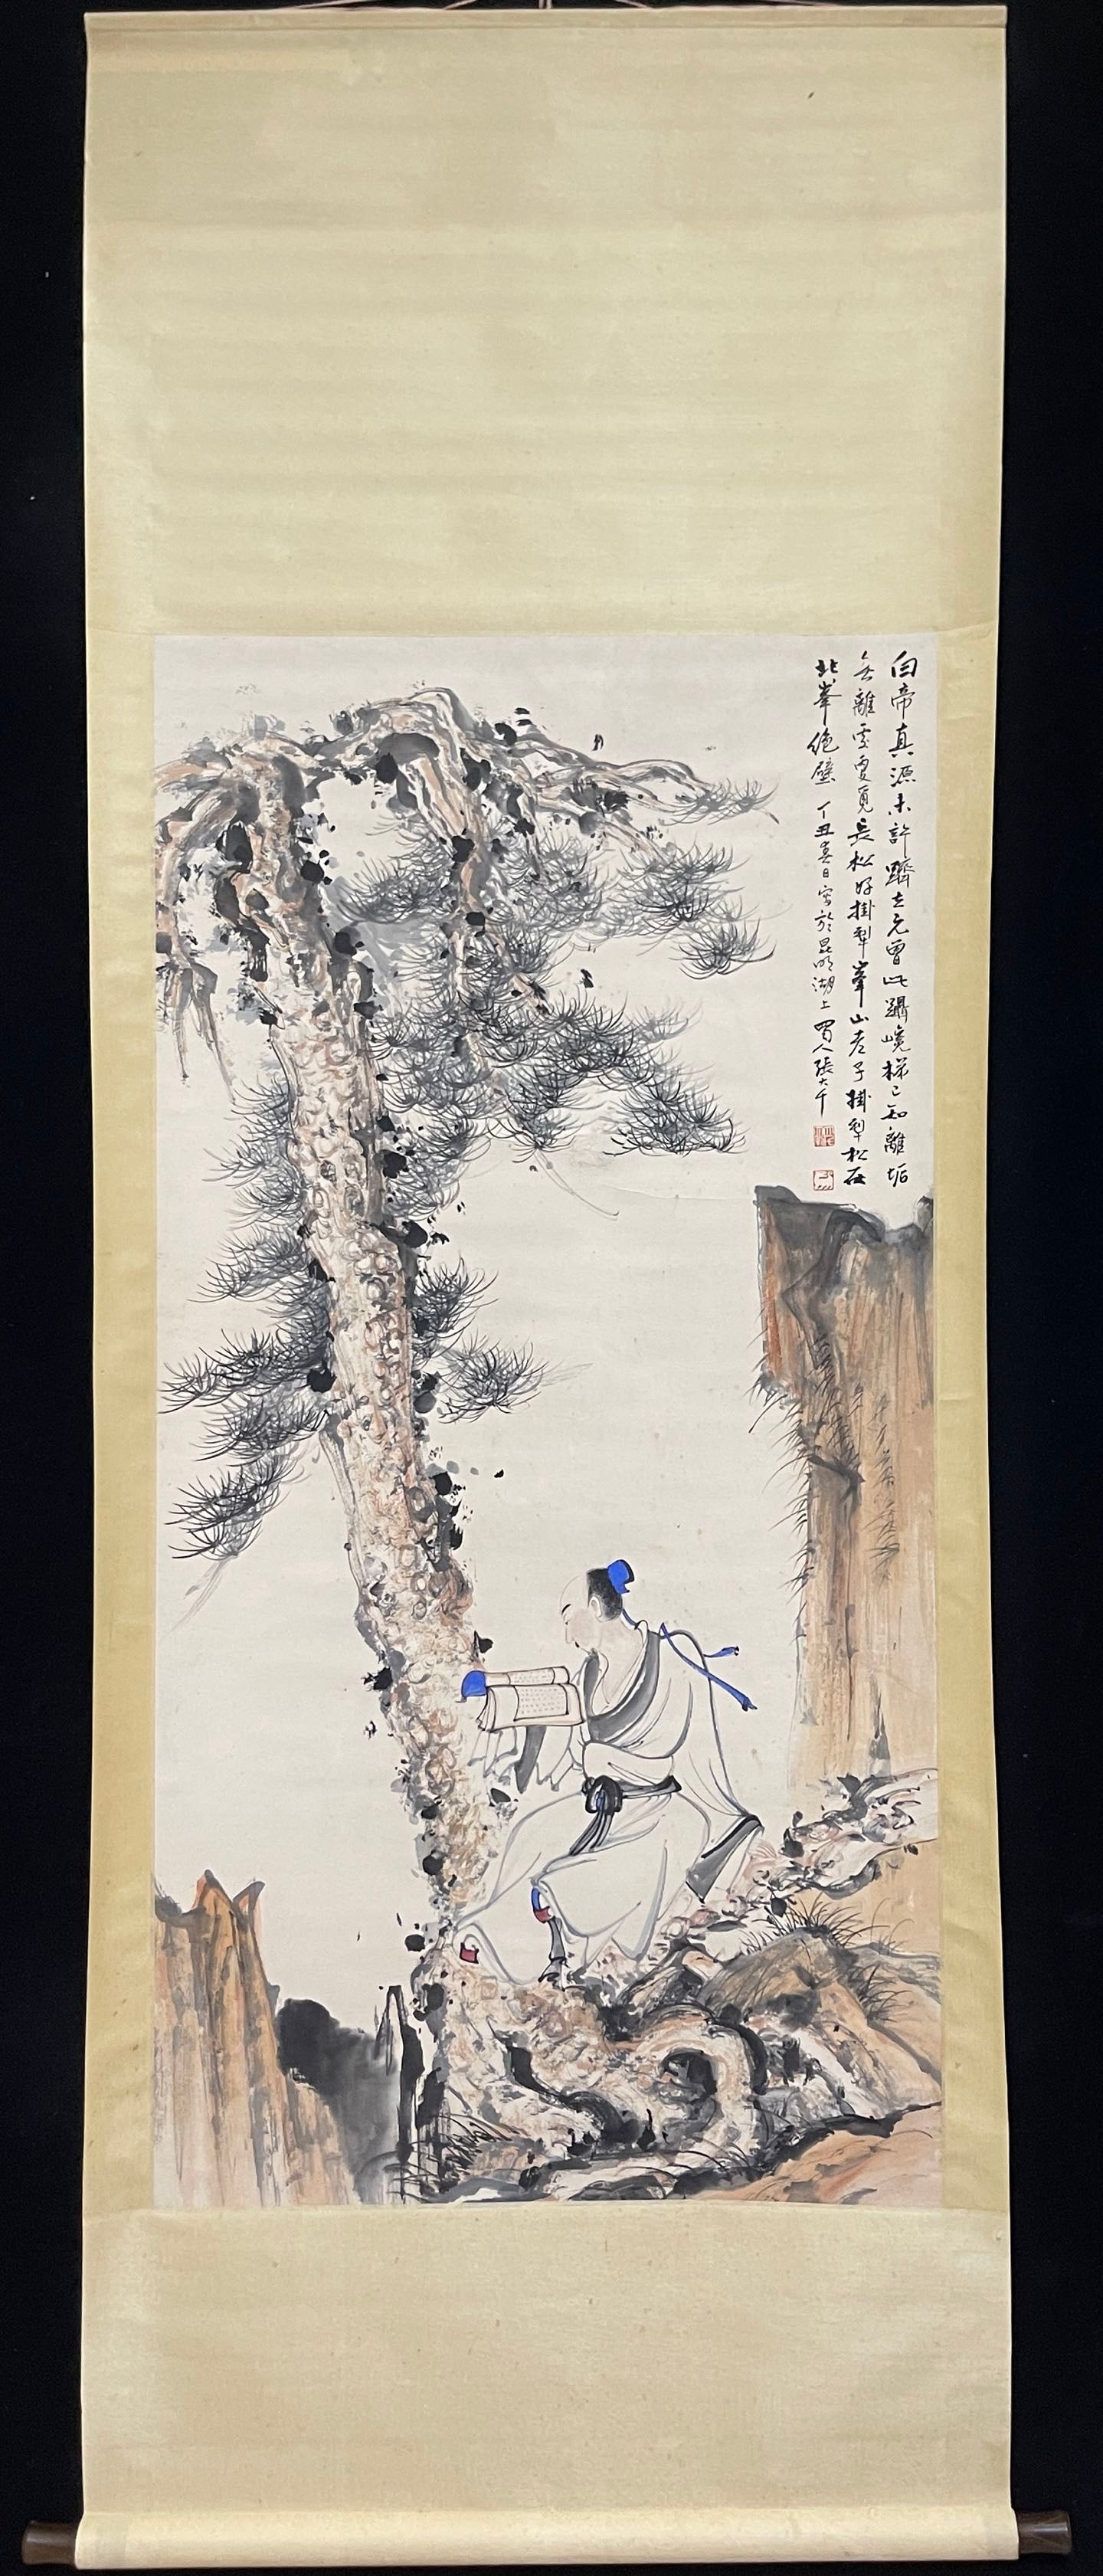 白帝真源未許躋老元曾此躡嶢梯已知離垢
無離處更覓長松好掛犁峯山老子掛犁松在
北峯絕壁 丁丑春日寫於昆明湖上 蜀人張大千